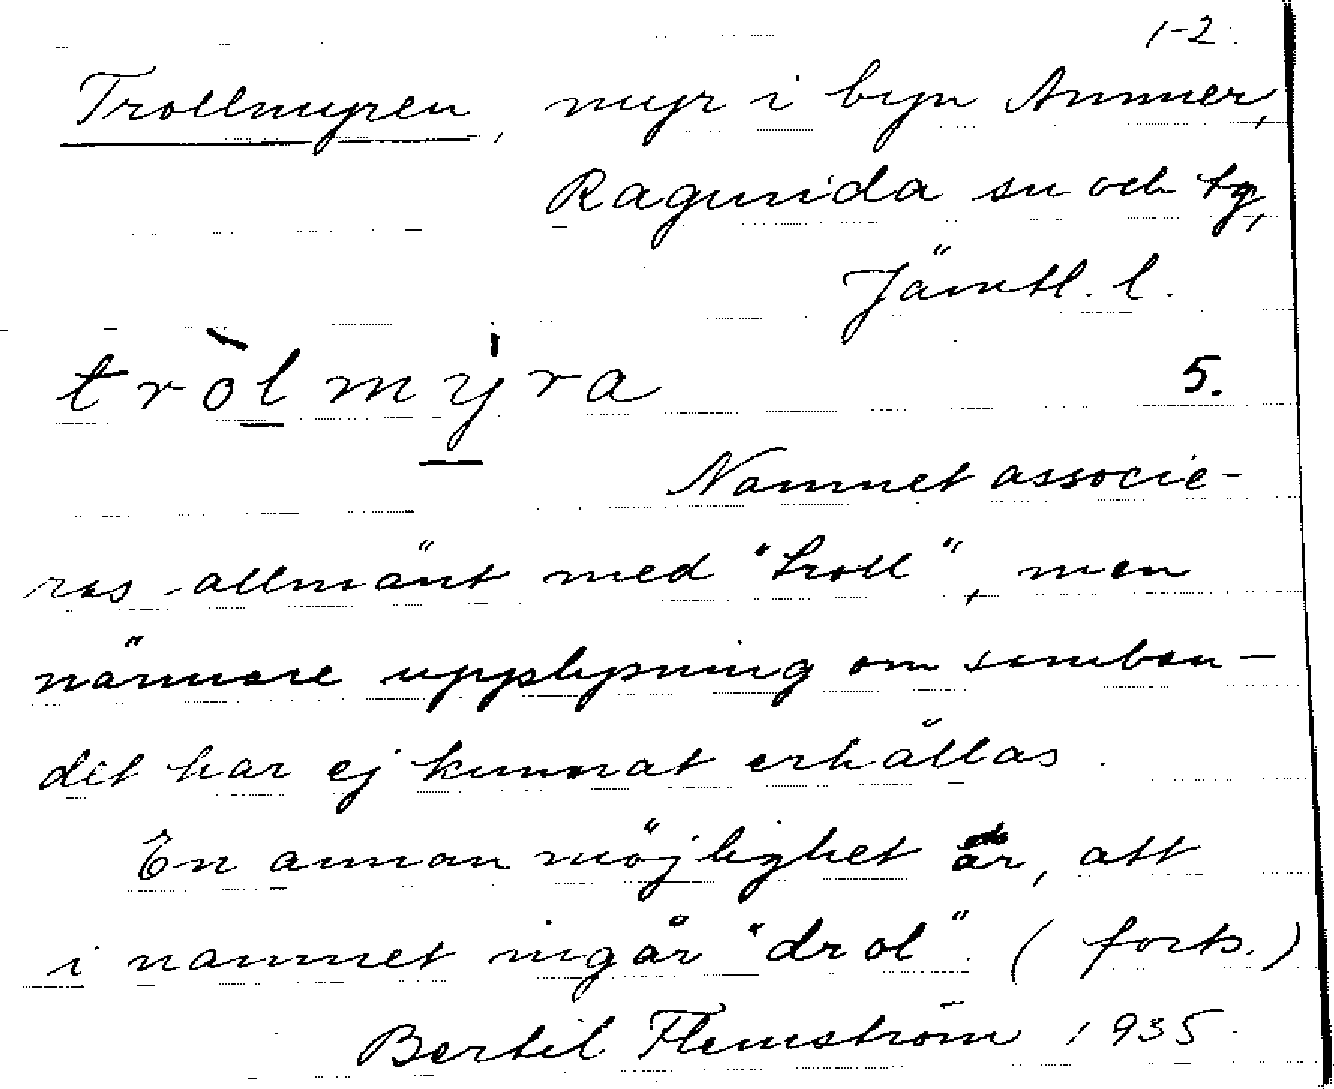 1-2.
Trollmyren, myr i byn Ammer,
Ragunda sn och tg,
Jämtl. l.
tròlmýra 5.
Namnet associe-
ras allmänt med "troll", men
närmare upplysning om samban-
det har ej kunnat erhållas.
En annan möjlighet är, att
i namnet ingår "drol". (forts.)
Bertil Flemström 1935.